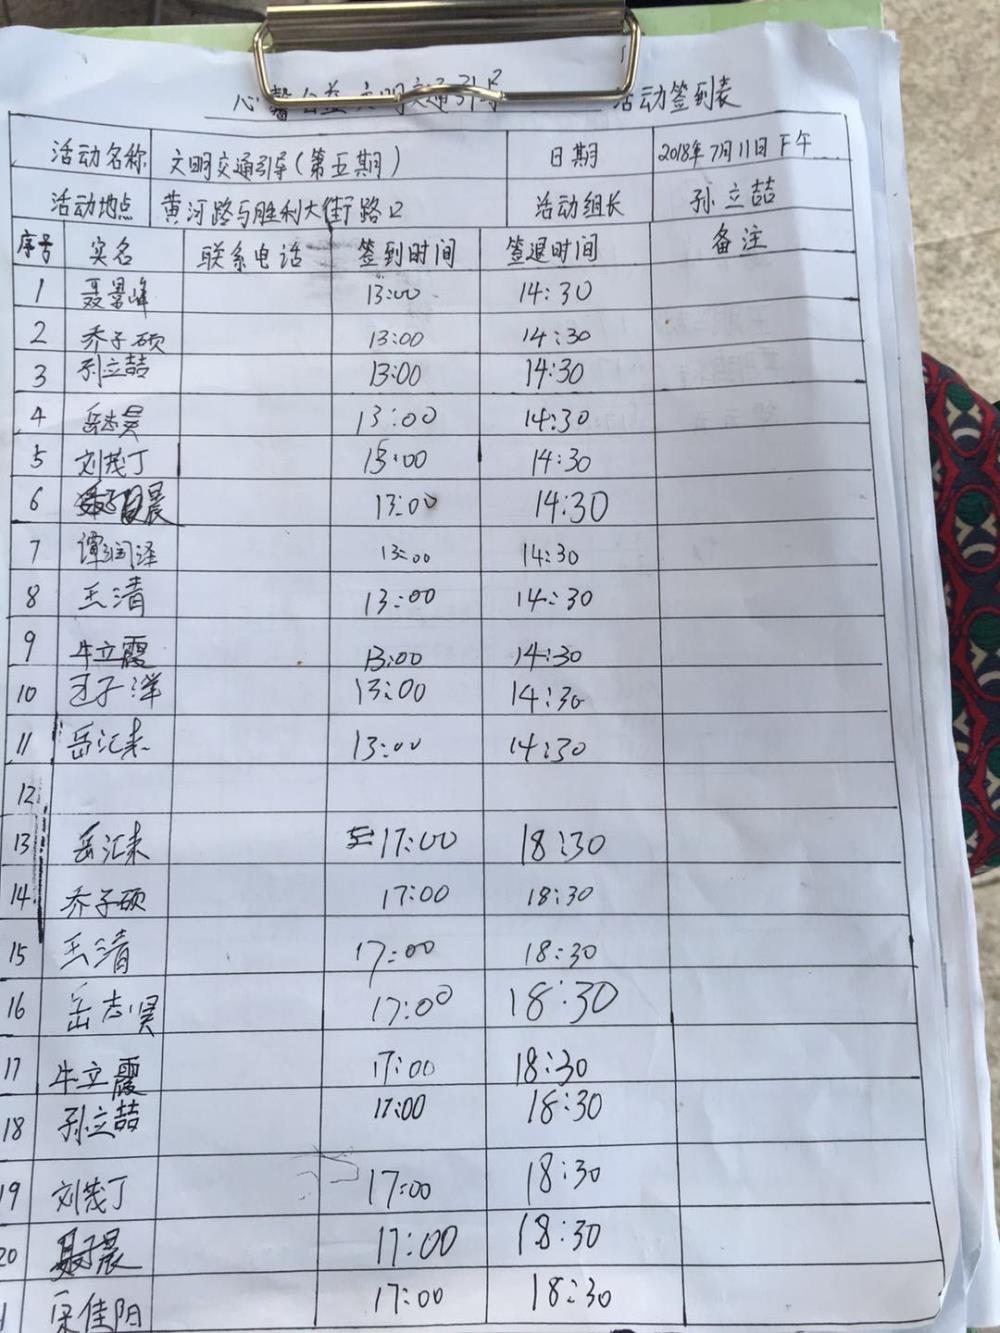 心馨公益文明交通引导 活动签到表
活动名称 文明交通引导(第五期) 日期 2018年7月11日下午
活动地点 黄河路与胜利大街路口 活动组长 孙立喆
序号 实名 联系电话 签到时间 签退时间 备注
1 聂景峰 13:00 14:30
2 乔子硕 13:00 14:30
3 孙立喆 13:00 14:30
4 岳志昊 13:00 14:30
5 刘茂丁 13:00 14:30
6 晨 13:00 14:30
7 谭润泽 13:00 14:30
8 王清 13:00 14:30
9 牛立霞 13:00 14:30
10 王子洋 13:00 14:30
11 岳汇来 13:00 14:30
12
13 岳汇来 17:00 18:30
14 乔子硕 17:00 18:30
15 王清 17:00 18:30
16 岳志昊 17:00 18:30
17 牛立霞 17:00 18:30
18 孙立喆 17:00 18:30
19 刘茂丁 17:00 18:30
20 晨 17:00 18:30
1 佳阴 17:00 18:30